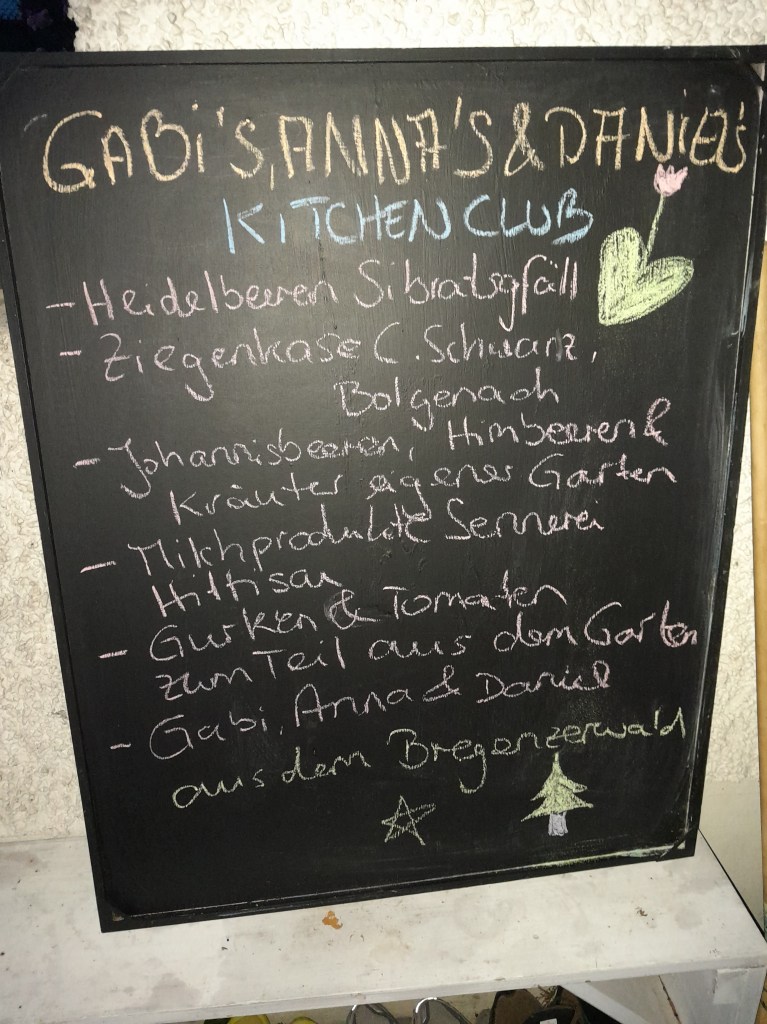 GABi'S, ANNA'S & DANiEL'S
KiTCHEN CLUB
- Heidelbeeren Sibratsgfäll
- Ziegenkäse C. Schwarz,
Bolgenach
- Johannisbeeren, Himbeeren &
Kräuter eigener Garten
- Milchprodukte Sennerei
Hittisau
- Gurken & Tomaten
zum Teil aus dem Garten
- Gabi, Anna & Daniel
aus dem Bregenzerwald